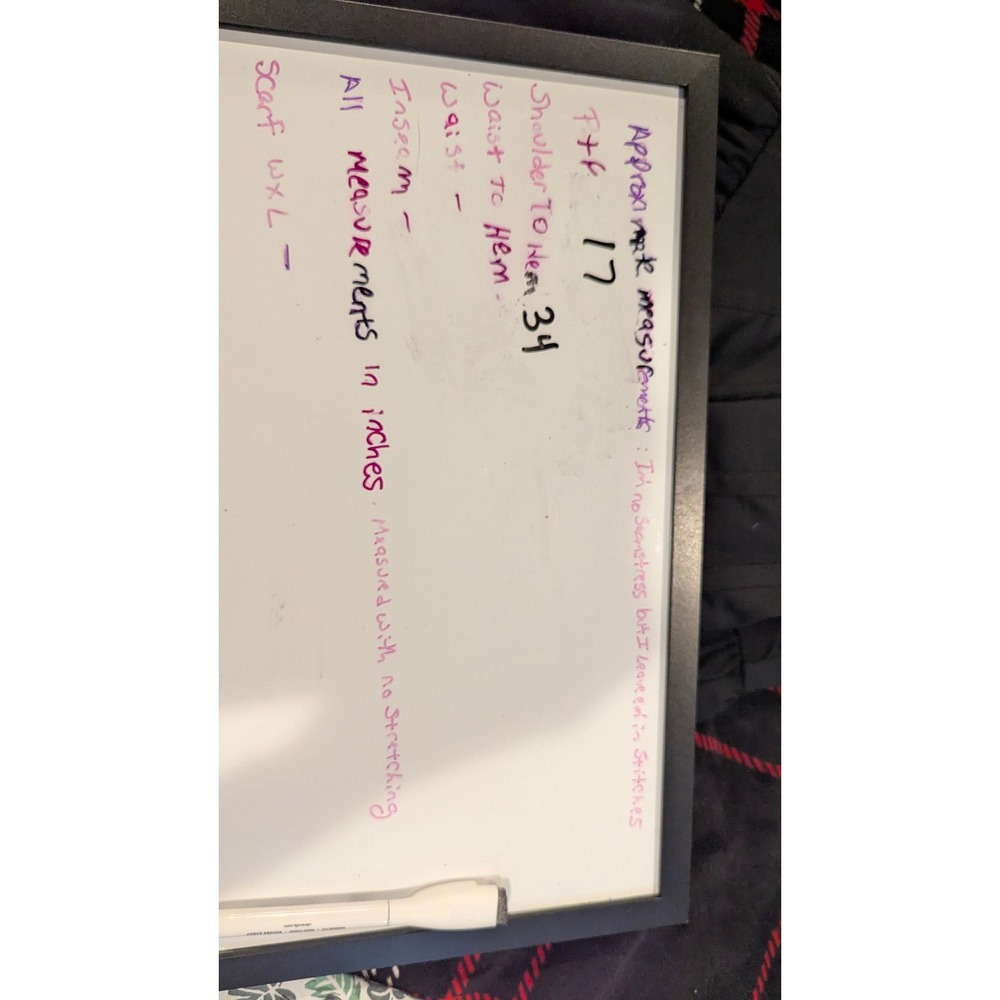 Approximate measurements : I'm no seamstress but I leave em in stitches
PtP. 17
Shoulder To Hem 34
Waist To Hem -
Waist -
Inseam -
All measurements In inches. Measured with no stretching
Scarf W x L -